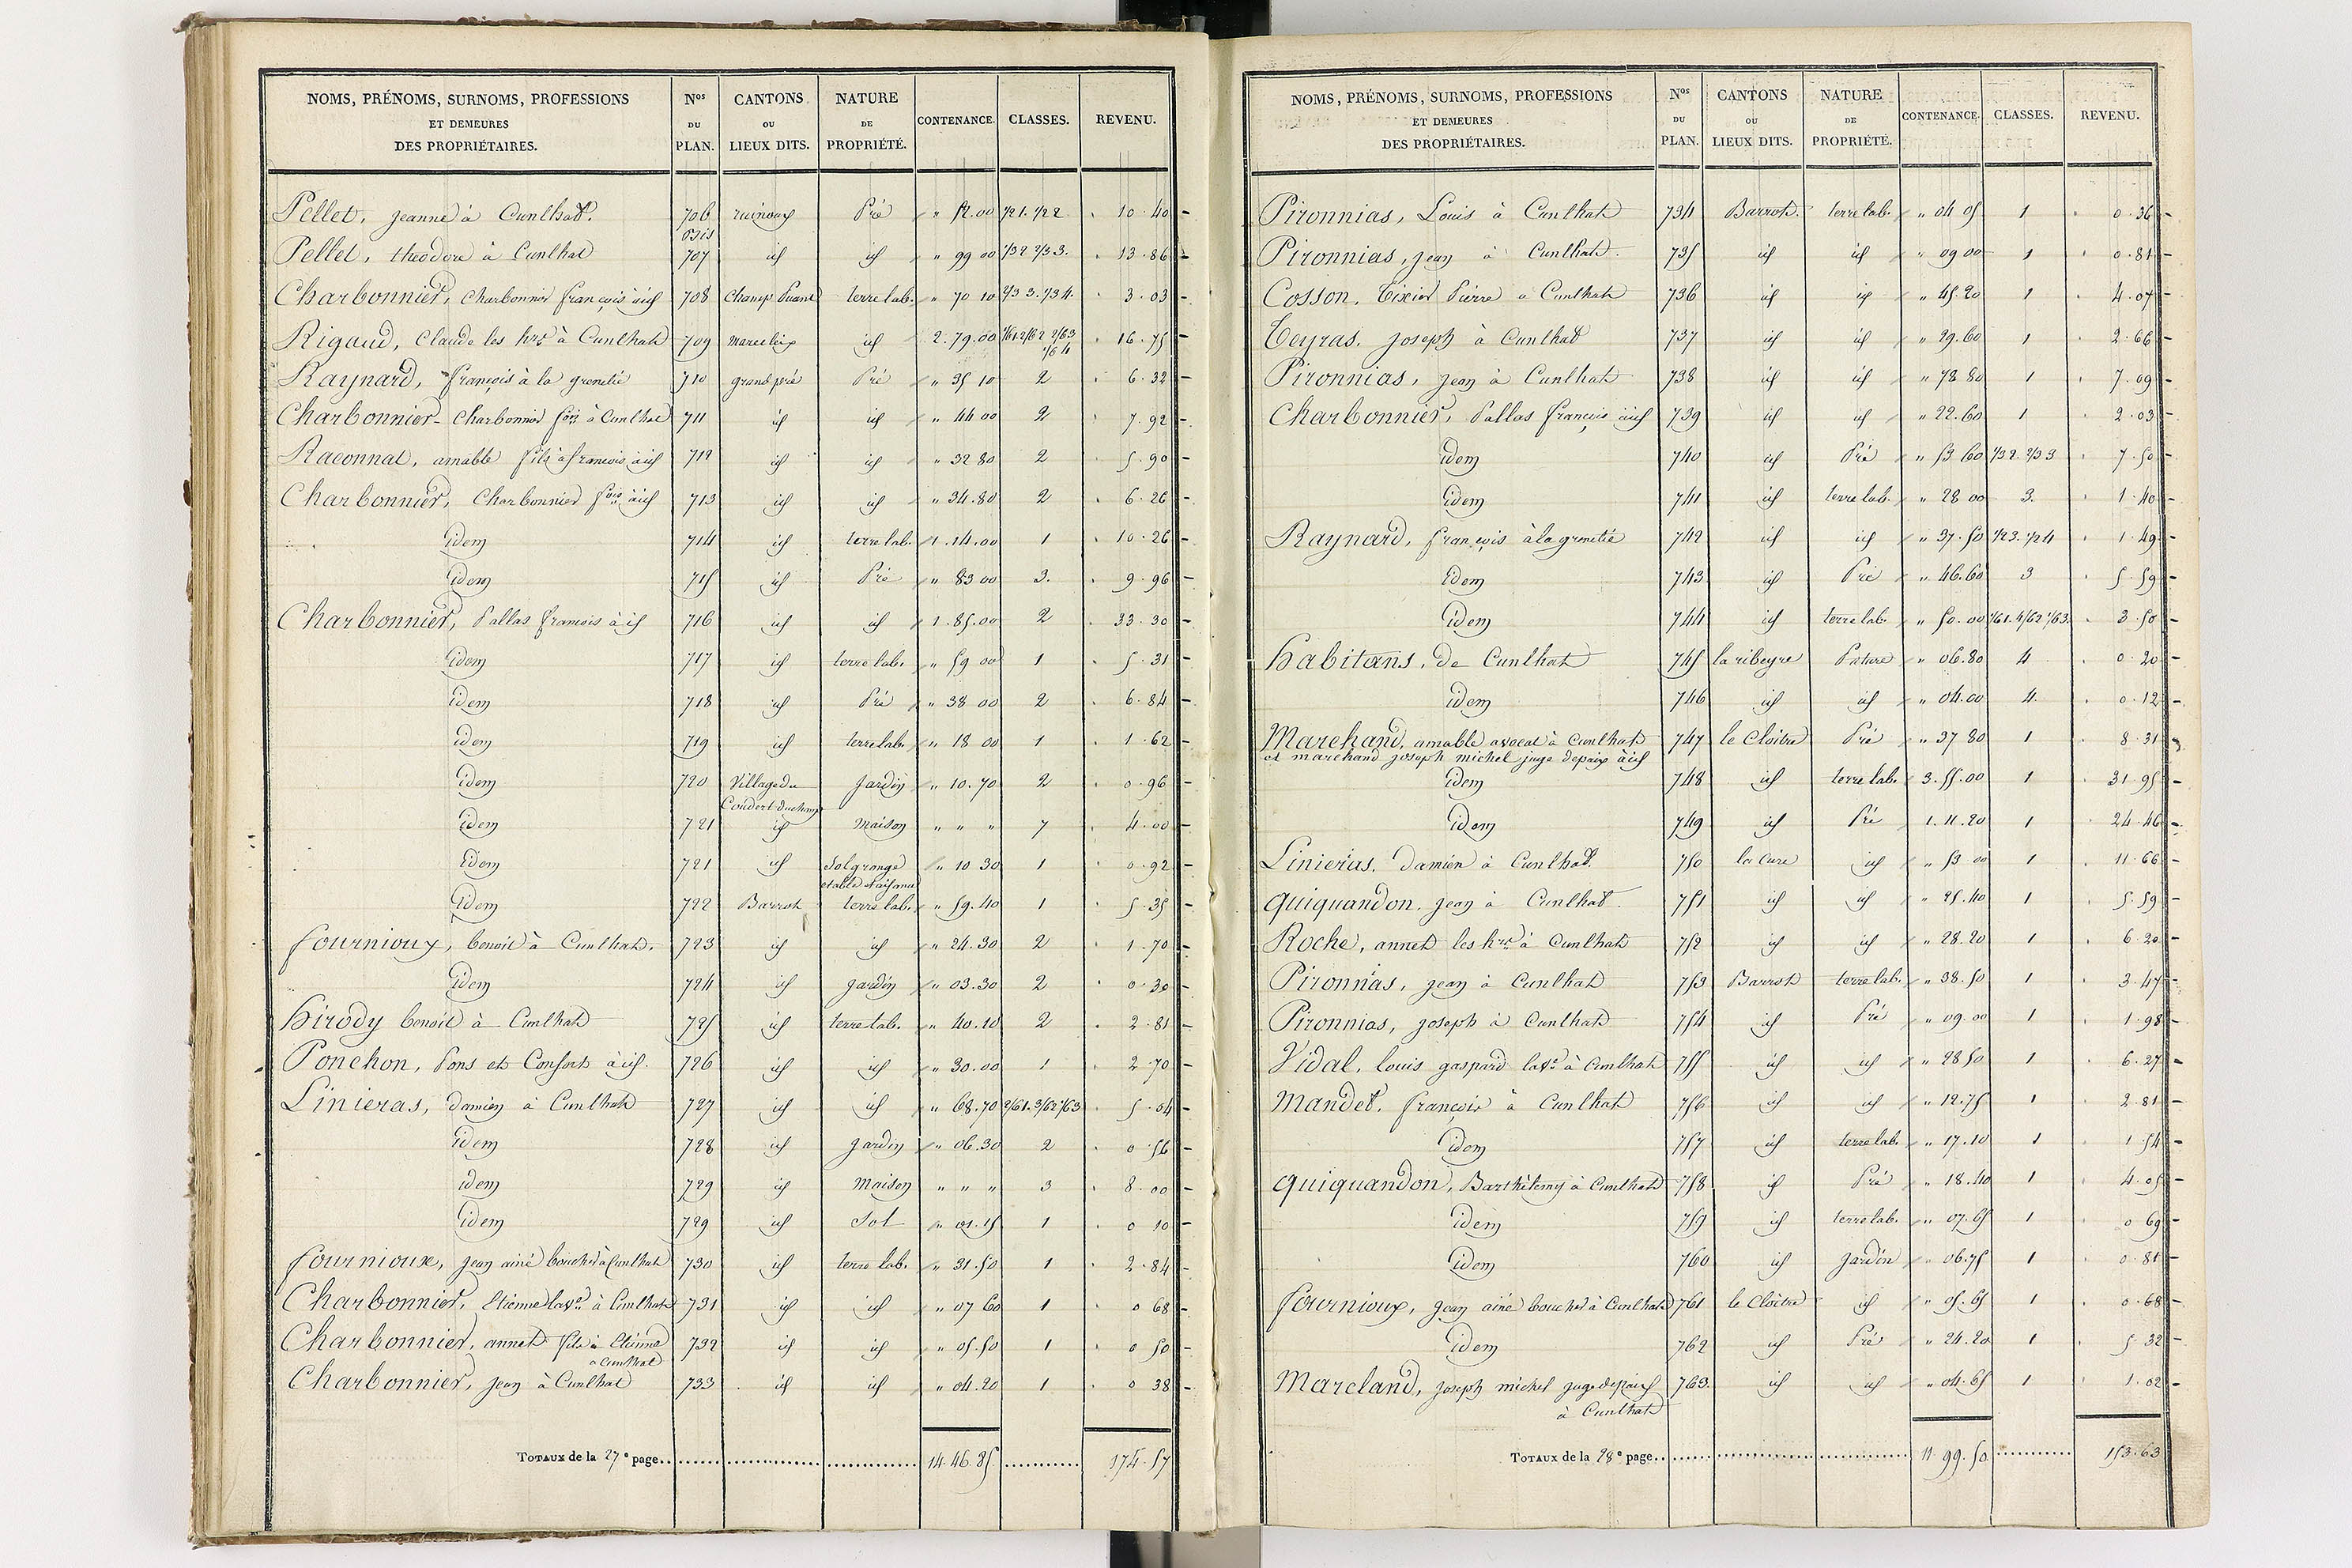 NOMS, PRÉNOMS, SURNOMS, PROFESSIONS ET DEMEURES DES PROPRIÉTAIRES. Nos DU PLAN. CANTONS OU LIEUX DITS. NATURE DE PROPRIÉTÉ. CONTENANCE. CLASSES. REVENU.
Pellet, jeanne à Cunlhat. 706 bis Pré " 52.00 1/2 1. 1/2 2 10.40
Pellet, theodore à Cunlhat 707 id id " 99 00 1/3 2 2/3 3. 13.86
Charbonnier, charbonnier françois à id 708 Champ Puant terre lab. " 70 10 2/3 3. 1/3 4. 3.03
Rigaud, Claude les hrs à Cunlhat 709 id 2.79.00 16.75
Raynard, françois à la grenetie 710 grand pré Pré " 35 10 2 6.32
Charbonnier Charbonnier fois à Cunlhat 711 id id " 44 00 2 7.92
Raconnat, amable fils à francois à id 712 id id " 32 80 2 5.90
Charbonnier, Charbonnier fois à id 713 id id " 34.80 2 6.26
idem 714 id terre lab. 1.14.00 1 10.26
idem 715 id Pré " 83 00 3. 9.96
Charbonnier, Pallas francois à id 716 id id 1.85.00 2 33.30
idem 717 id terre lab. " 59 00 1 5.31
idem 718 id Pré " 38 00 2 6.84
idem 719 id terre lab. " 18 00 1 1.62
idem 720 Village du Coudert duchamp Jardin " 10.70 2 0.96
idem 721 id Maison " " " 7 4.00
idem 721 id Sol grange etable et aisance " 10 30 1 0.92
idem 722 Barrot terre lab. " 59.40 1 5.35
fournioux, benoit à Cunlhat. 723 id id " 24.30 2 1.70
idem 724 id jardin " 03.30 2 0.30
hirody benoit à Cunlhat 725 id terre lab. " 40.10 2 2.81
Ponchon, Pons et Consorts à id. 726 id id " 30.00 1 2.70
Linieras, Damien à Cunlhat 727 id id " 68.70 2/6 1. 3/6 2 1/6 3 5.04
idem 728 id jardin " 06.30 2 0.56
idem 729 id Maison " " " 3 8.00
idem 729 id Sol " 01.15 1 0 10
fournioux, jean ainé boucher à Cunlhat 730 id terre lab. " 31.50 1 2.84
Charbonnier, Etienne lave à Cunlhat 731 id id " 07 60 1 0 68
Charbonnier, annet fils à Etienne à Cunlhat 732 id id " 05.50 1 0 50
Charbonnier, jean à Cunlhat 733 id id " 04.20 1 0 38
TOTAUX de la 27e page 14.46.85 174.57
NOMS, PRÉNOMS, SURNOMS, PROFESSIONS ET DEMEURES DES PROPRIÉTAIRES. Nos DU PLAN. CANTONS OU LIEUX DITS. NATURE DE PROPRIÉTÉ. CONTENANCE. CLASSES. REVENU.
Pironnias, Louis à Cunlhat 734 Barrot. terre lab. " 04 05 1 0.36
Pironnias, jean à Cunlhat. 735 id id " 09 00 1 0.81
Cosson, Tixier Pierre a Cunlhat 736 id id " 45.20 1 4.07
Teyras, joseph à Cunlhat 737 id id " 29.60 1 2.66
Pironnias, jean à Cunlhat 738 id id " 78 80 1 7.09
Charbonnier, Pallas françois à id 739 id id " 22.60 1 2.03
idem 740 id Pré " 53 60 1/3 2. 2/3 3 7.50
idem 741 id terre lab. " 28 00 3. 1.40
Raynard, françois à la grenetie 742 id id " 37.50 1/2 3. 1/2 4 1.49
idem 743 id Pré " 46.60 3 5.59
idem 744 id terre lab. " 50.00 1/6 1. 4/6 2 1/6 3. 3.50
habitans, de Cunlhat 745 la ribeyre Pature " 06.80 4 0.20
idem 746 id id " 04.00 4. 0.12
Marchand, amable avocat à Cunlhat 747 le Cloitre Pré " 37 80 1 8.31
et marchand joseph michel juge de paix à id
idem 748 id terre lab. 3.55.00 1 31.95
idem 749 id Pré 1.11.20 1 24.46
Linieras, Damien à Cunlhat. 750 la Cure id " 53 00 1 11.66
quiquandon, jean à Cunlhat. 751 id id " 25.40 1 5.59
Roche, annet les hrs à Cunlhat 752 id id " 28.20 1 6.20
Pironnias, jean à Cunlhat 753 Barrot terre lab. " 38.50 1 3.47
Pironnias, joseph à Cunlhat 754 id Pré " 09.00 1 1.98
Vidal, louis gaspard lave à Cunlhat 755 id id " 28 50 1 6.27
Mandet, françois à Cunlhat 756 id id " 12.75 1 2.81
idem 757 id terre lab. " 17.10 1 1.54
quiquandon, Barthélemy à Cunlhat 758 id Pré " 18.40 1 4.05
idem 759 id terre lab. " 07.65 1 0 69
idem 760 id jardin " 06.75 1 0.81
fournioux, jean ainé boucher à Cunlhat 761 le Cloitre id " 05.65 1 0.68
idem 762 id Pré " 24.20 1 5.32
Marcland, joseph michel juge de paix à Cunlhat 763. id id " 04.65 1 1.02
TOTAUX de la 28e page 11.99.50 153.63